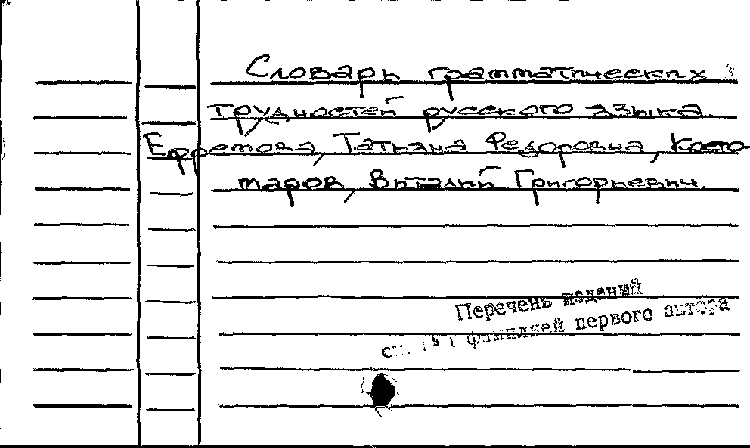 Словарь грамматических
трудностей русского языка.
Ефремова, Татьяна Федоровна, Косто-
маров, Виталий Григорьевич.
Перечень изданий
см. под фамилией первого автора